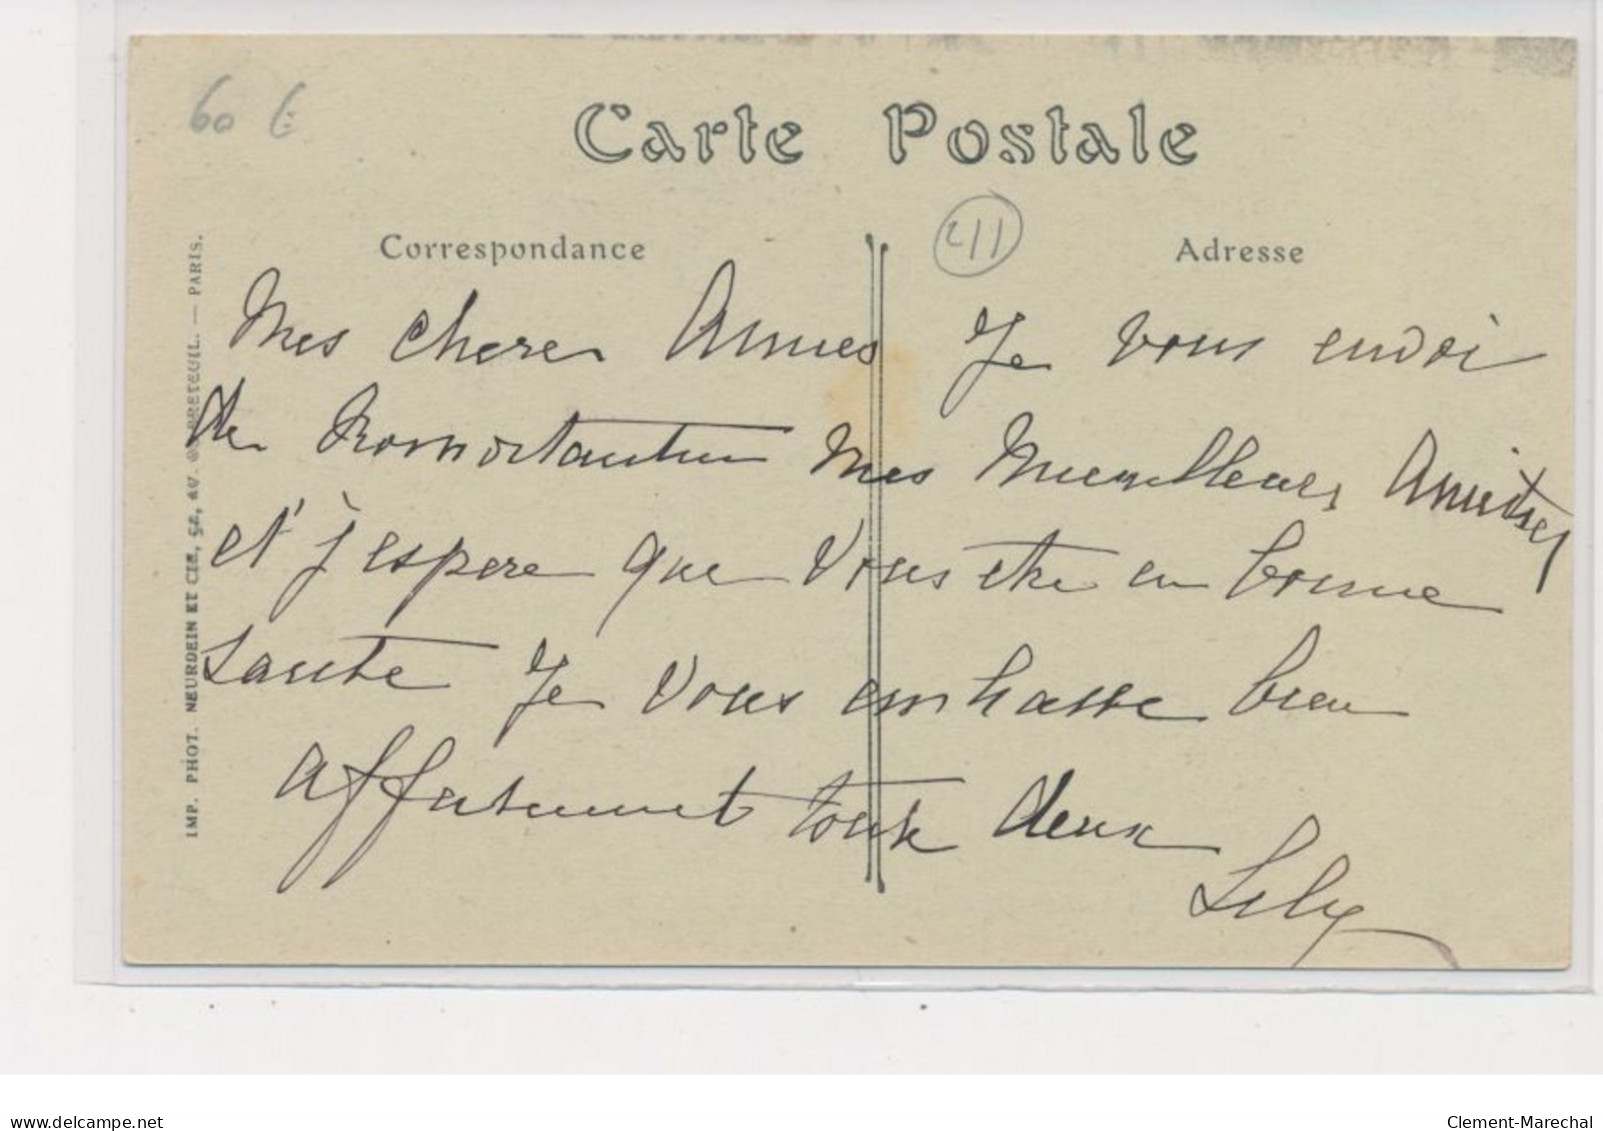 60 €
Carte Postale
211
Correspondance
Adresse
IMP. PHOT. NEURDEIN ET CIE, 52, AV. DE BRETEUIL. — PARIS.
Mes chere Amies Je vous envoi
de Romorantin mes Meilleures Amities
et j'espere que vous etre en bonne
sante Je vous embrasse bien
affectument toute deux
Lily
www.delcampe.net
Clement-Marechal